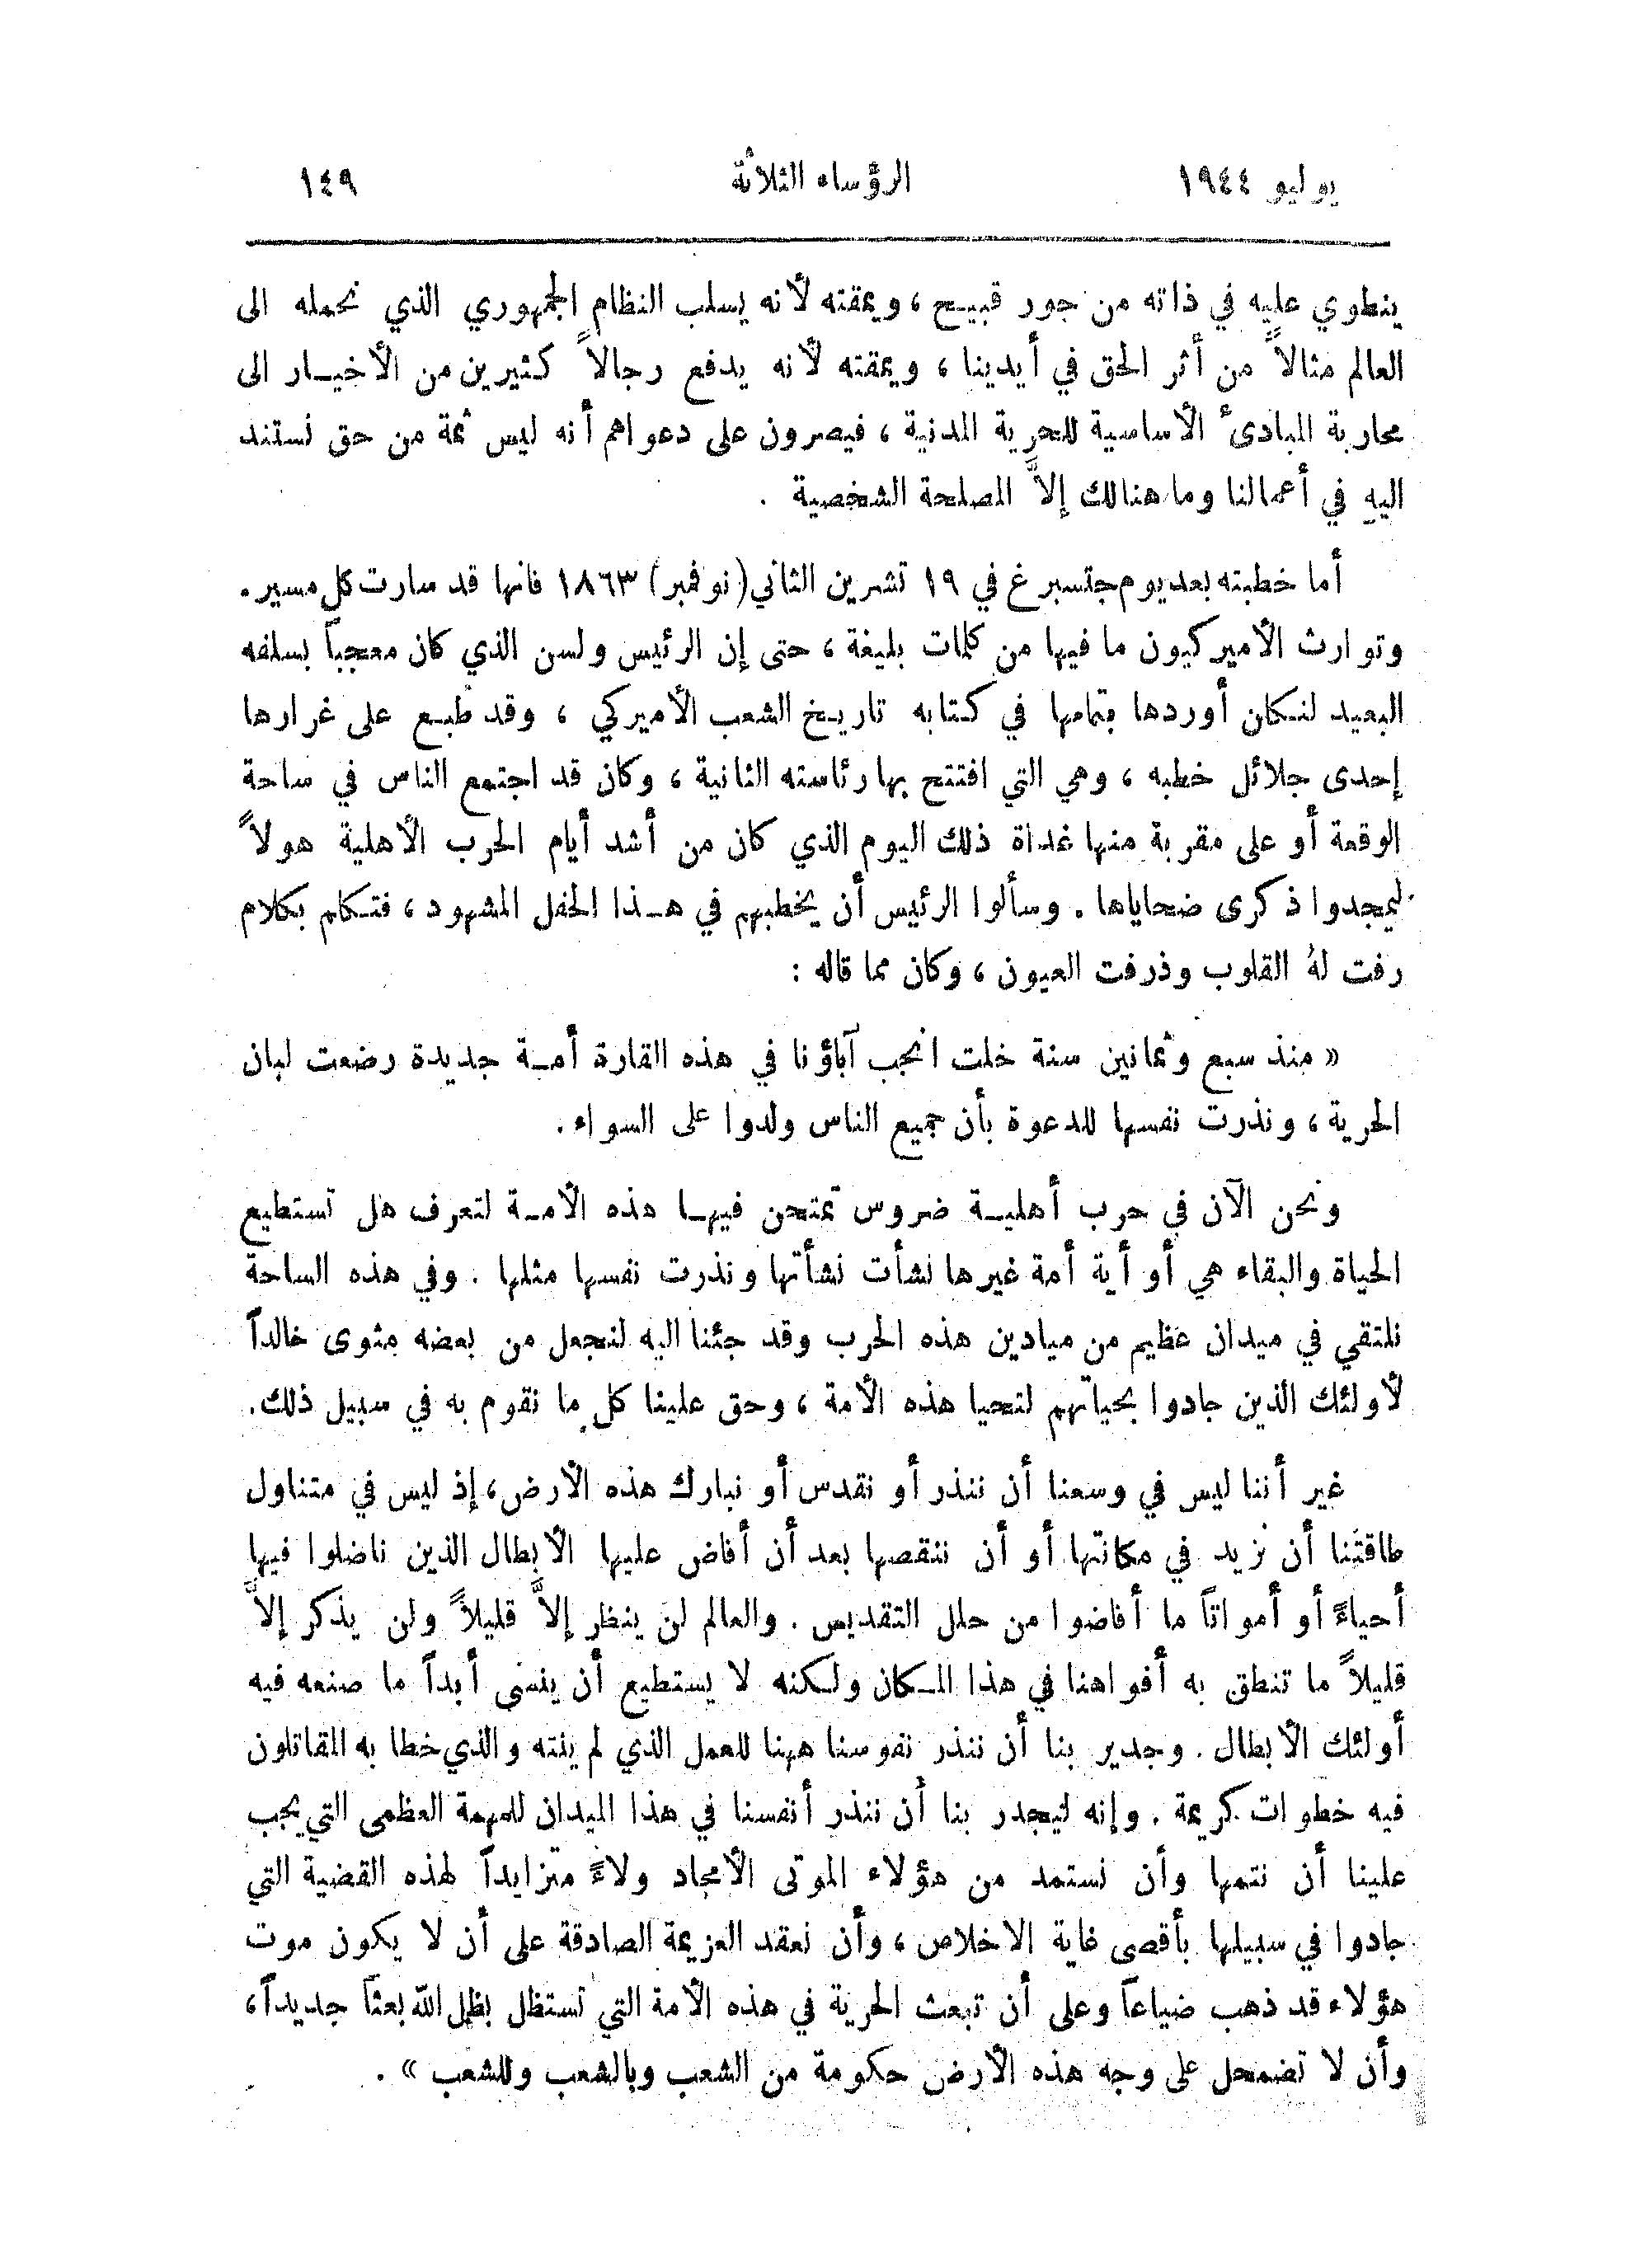 يوليو ١٩٤٤ الرؤساء الثلاثة ١٤٩
ينطوي عليه في ذاته من جور قبيح ، ويمقته لأنه يسلب النظام الجمهوري الذي نحمله الى
العالم مثالاً من أثر الحق في أيدينا ، ويمقته لأنه يدفع رجالاً كثيرين من الأخيار الى
محاربة المبادئ الأساسية للحرية المدنية ، فيصرون على دعواهم أنه ليس ثمة من حق نستند
اليهِ في أعمالنا وما هنالك إلاَّ المصلحة الشخصية .
أما خطبته بعد يوم جتسبرغ في ١٩ تشرين الثاني (نوفمبر) ١٨٦٣ فانها قد سارت كل مسير .
وتوارث الأميركيون ما فيها من كلمات بليغة ، حتى إن الرئيس ولسن الذي كان معجباً بسلفه
البعيد لنكان أوردها بتمامها في كتابه تاريخ الشعب الأميركي ، وقد طبع على غرارها
إحدى جلائل خطبه ، وهي التي افتتح بها رئاسته الثانية ، وكان قد اجتمع الناس في ساحة
الوقعة أو على مقربة منها غداة ذلك اليوم الذي كان من أشد أيام الحرب الأهلية هولاً
ليمجدوا ذكرى ضحاياها . وسألوا الرئيس أن يخطبهم في هذا الحفل المشهود ، فتكلم بكلام
رفت لهُ القلوب وذرفت العيون ، وكان مما قاله :
« منذ سبع وثمانين سنة خلت انجب آباؤنا في هذه القارة أمة جديدة رضعت لبان
الحرية ، ونذرت نفسها للدعوة بأن جميع الناس ولدوا على السواء .
ونحن الآن في حرب أهلية ضروس تمتحن فيها هذه الأمة لتعرف هل تستطيع
الحياة والبقاء هي أو أية أمة غيرها نشأت نشأتها ونذرت نفسها مثلها . وفي هذه الساحة
نلتقي في ميدان عظيم من ميادين هذه الحرب وقد جئنا اليه لنجعل من بعضه مثوى خالداً
لأولئك الذين جادوا بحياتهم لتحيا هذه الأمة ، وحق علينا كل ما نقوم به في سبيل ذلك .
غير أننا ليس في وسعنا أن ننذر أو نقدس أو نبارك هذه الأرض ، إذ ليس في متناول
طاقتنا أن نزيد في مكانتها أو أن ننقصها بعد أن أفاض عليها الأبطال الذين ناضلوا فيها
أحياءً أو أمواتاً ما أفاضوا من حلل التقديس . والعالم لن ينظر إلاَّ قليلاً ولن يذكر إلاَّ
قليلاً ما تنطق به أفواهنا في هذا المكان ولكنه لا يستطيع أن ينسى أبداً ما صنعه فيه
أولئك الأبطال . وجدير بنا أن ننذر نفوسنا ههنا للعمل الذي لم ينته والذي خطا به المقاتلون
فيه خطوات كريمة . وإنه ليجدر بنا أن ننذر أنفسنا في هذا الميدان للمهمة العظمى التي يجب
علينا أن نتمها وأن نستمد من هؤلاء الموتى الأمجاد ولاءً متزايداً لهذه القضية التي
جادوا في سبيلها بأقصى غاية الاخلاص ، وأن نعقد العزيمة الصادقة على أن لا يكون موت
هؤلاء قد ذهب ضياعاً وعلى أن تبعث الحرية في هذه الأمة التي تستظل بظل الله بعثاً جديداً ،
وأن لا تضمحل على وجه هذه الأرض حكومة من الشعب وبالشعب وللشعب » .